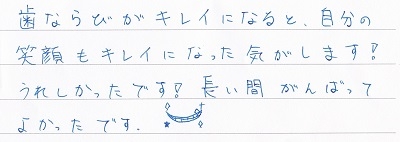 歯ならびがキレイになると、自分の
笑顔もキレイになった気がします!
うれしかったです!長い間がんばって
よかったです.